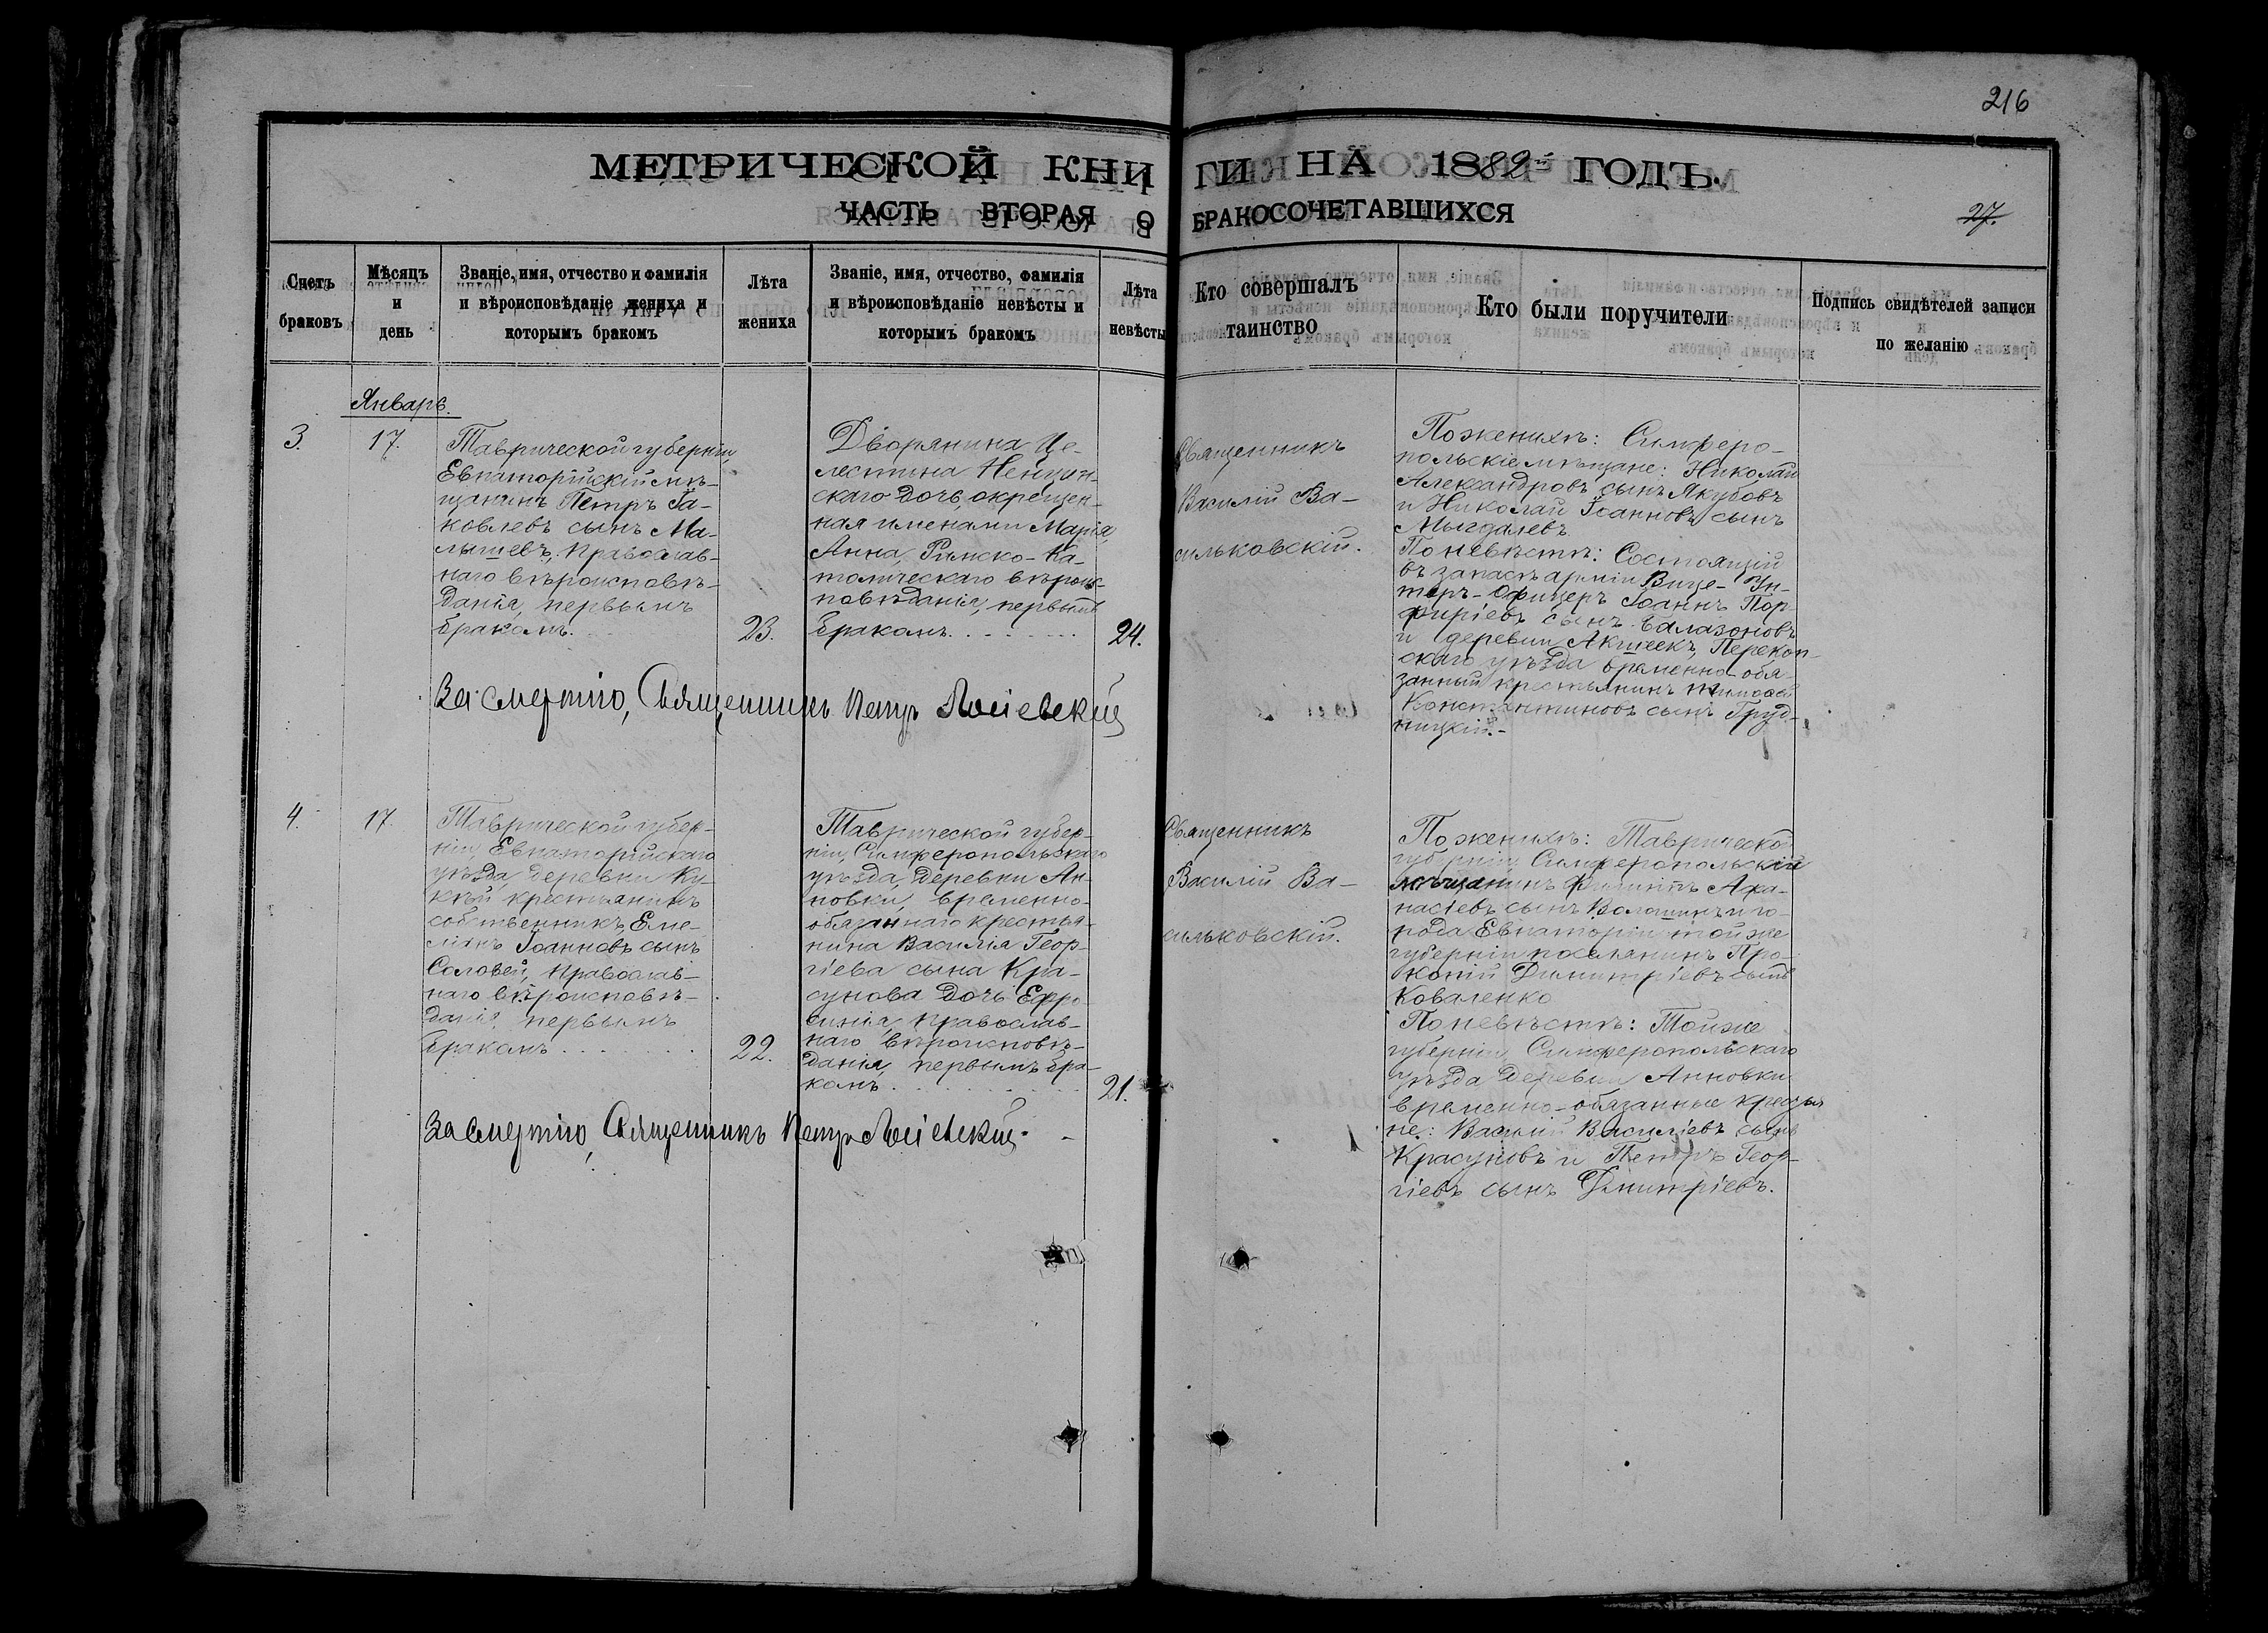 216
МЕТРИЧЕСКОЙ КНИГИ НА 1882й ГОДЪ.
ЧАСТЬ ВТОРАЯ О БРАКОСОЧЕТАВШИХСЯ
27.
Счетъ
браковъ
Мѣсяцъ
и
день
Званіе, имя, отчество и фамилія
и вѣроисповѣданіе жениха и
которымъ бракомъ
Лѣта
жениха
Званіе, имя, отчество, фамилія
и вѣроисповѣданіе невѣсты и
которымъ бракомъ
Лѣта
невѣсты
Кто совершалъ
таинство
Кто были поручители
Подпись свидѣтелей записи
по желанію
Январь.
3.
17.
Таврической губерніи,
Евпаторійскій мѣ-
щанинъ Петръ Іа-
ковлевъ сынъ Ма-
лышевъ, православ-
наго вѣроисповѣ-
данія, первымъ
бракомъ.
23.
Дворянина Це-
лестина
скаго дочь, окрещен-
ная именами Марія,
Анна, Римско-Ка-
толическаго вѣроис-
повѣданія, первымъ
бракомъ.
24.
Священникъ
Василій Ва-
сильковскій.
По женихѣ: Симферо-
польскіе мѣщане: Николай
Александровъ сынъ Якубовъ
и Николай Іоанновъ сынъ
Мыгдалевъ
По невѣстѣ: Состоящій
въ запасѣ арміи Вице-Ун-
теръ-Офицеръ Іоаннъ Пор-
фиріевъ сынъ Балазоновъ
и деревни Акшеекъ, Перекоп-
скаго уѣзда временно-обя-
занный крестьянинъ Тимофей
Константиновъ сынъ Груд-
ницкій.-
За смертію, Священникъ Петръ
4.
17.
Таврической губер-
ніи, Евпаторійскаго
уѣзда деревни Ку-
кѣй крестьянинъ
собственникъ, Еме-
ліянъ Іоанновъ сынъ
Соловей, православ-
наго вѣроисповѣ-
данія, первымъ
бракомъ.
22.
Таврической губер-
ніи, Симферопольскаго
уѣзда, деревни Ан-
новки, временно-
обязаннаго крестья-
нина Василія Геор-
гіева сына Кра-
сунова дочь Ефро-
синія, православ-
наго вѣроисповѣ-
данія, первымъ бра-
комъ.
21.
Священникъ
Василій Ва-
сильковскій.
По женихѣ: Таврической
губерніи Симферопольскій
мѣщанинъ Филиппъ Афа-
насіевъ сынъ Волошинъ и го-
рода Евпаторіи той же
губерніи поселянинъ Про-
копій Димитріевъ сынъ
Коваленко
По невѣстѣ: Той же
губерніи, Симферопольскаго
уѣзда деревни Анновки
временно-обязанные крестья
не: Василій Василіевъ сынъ
Красуновъ и Петръ Геор-
гіевъ сынъ Димитріевъ.
За смертію, Священникъ Петръ